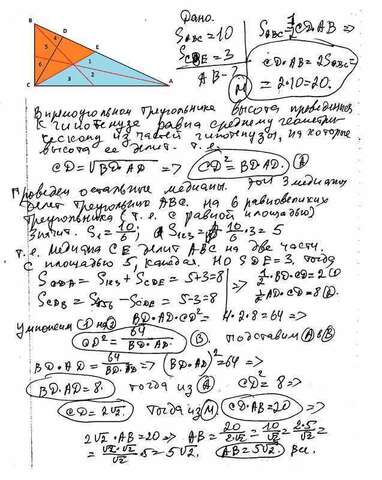 B
D
E
C
A
5
4
6
3
1
2
Дано.
S_ABC = 10
S_CDE = 3
AB = ?
S_ABC = 1/2 CD·AB =>
CD·AB = 2S_ABC =
= 2·10 = 20.
M
В прямоугольном треугольнике высота проведенная
к гипотенузе равна среднему геометри-
ческому из частей гипотенузы, на которые
высота ее делит. т.е.
CD = √BD·AD => CD² = BD·AD. A
Проведем остальные медианы. 3 медианы
делят треугольник ABC на 6 равновеликих
треугольника (т.е. с равной площадью)
Значит. S₁ = 10/6; S₁₂₃ = 10/6·3 = 5
т.е. медиана CE делит ABC на две части.
с площадью 5, каждая. Но S_CDE = 3, тогда
S_CDA = S₁₂₃ + S_CDE = 5+3 = 8
S_CDB = S₄₅₆ - S_CDE = 5-3=2
=> 1/2·BD·CD = 2 ①
1/2 AD·CD = 8 ②
умножим ① на ② BD·AD·CD² = 4·2·8 = 64 =>
CD² = 64/BD·AD. B подставим A в B
BD·AD = 64/BD·AD => (BD·AD)² = 64 =>
BD·AD = 8. тогда из A CD² = 8 =>
CD = 2√2. Тогда из M CD·AB = 20 =>
2√2·AB = 20 => AB = 20/2√2 = 10/√2 = 2·5/√2 =
= √2·√2/√2·5 = 5√2. AB = 5√2. Все.